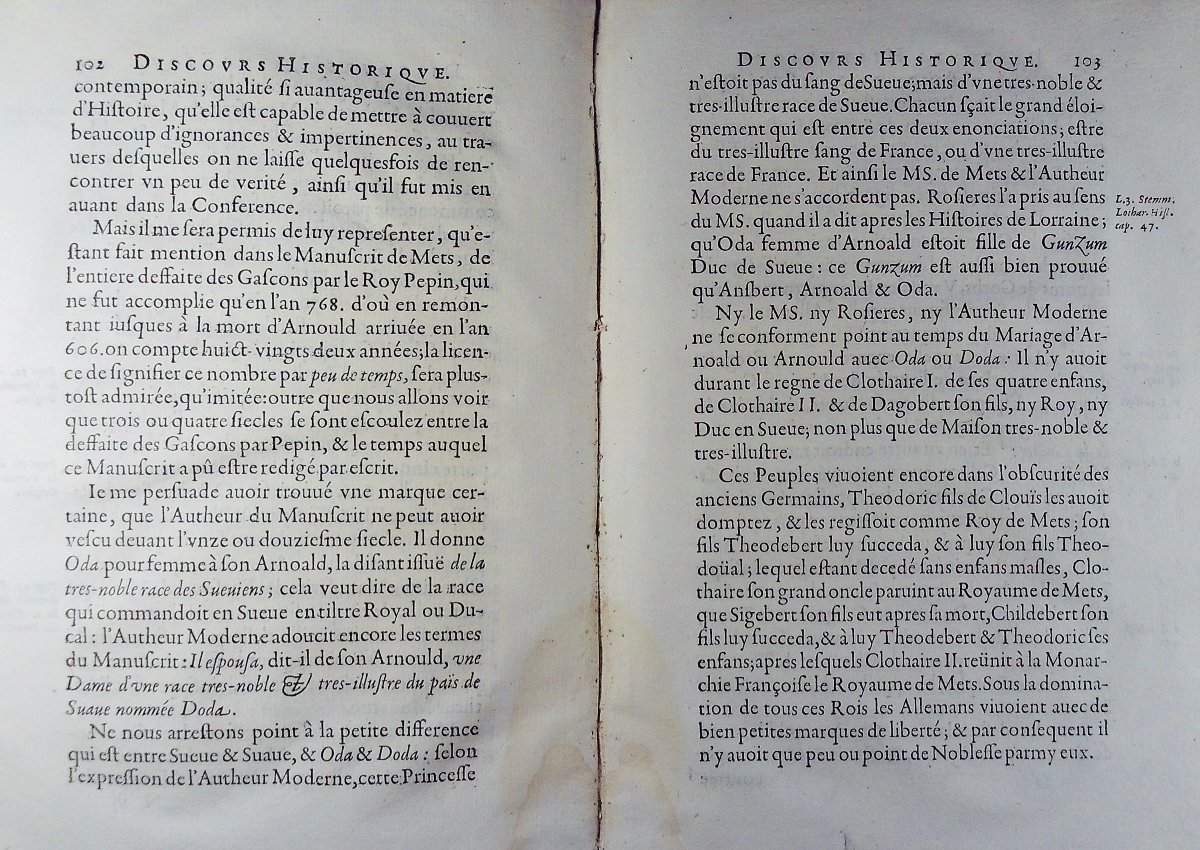 102 DISCOVRS HISTORIQVE.
contemporain; qualité ſi auantageuſe en matiere
d'Hiſtoire, qu'elle eſt capable de mettre à couuert
beaucoup d'ignorances & impertinences, au tra-
uers deſquelles on ne laiſſe quelquesfois de ren-
contrer vn peu de verité, ainſi qu'il fut mis en
auant dans la Conference.
Mais il me ſera permis de luy repreſenter, qu'e-
ſtant fait mention dans le Manuſcrit de Mets, de
l'entiere deffaite des Gaſcons par le Roy Pepin, qui
ne fut accomplie qu'en l'an 768. d'où en remon-
tant iuſques à la mort d'Arnould arriuée en l'an
606. on compte huict-vingts deux années; la licen-
ce de ſignifier ce nombre par peu de temps, ſera plus-
toſt admirée, qu'imitée: outre que nous allons voir
que trois ou quatre ſiecles ſe ſont eſcoulez entre la
deffaite des Gaſcons par Pepin, & le temps auquel
ce Manuſcrit a pû eſtre redigé par eſcrit.
Ie me perſuade auoir trouué vne marque cer-
taine, que l'Autheur du Manuſcrit ne peut auoir
veſcu deuant l'vnze ou douzieſme ſiecle. Il donne
Oda pour femme à ſon Arnoald, la diſant iſſuë de la
tres-noble race des Sueuiens; cela veut dire de la race
qui commandoit en Sueue en tiltre Royal ou Du-
cal: l'Autheur Moderne adoucit encore les termes
du Manuſcrit: Il eſpouſa, dit-il de ſon Arnould, vne
Dame d'vne race tres-noble & tres-illuſtre du païs de
Suaue nommée Doda.
Ne nous arreſtons point à la petite difference
qui eſt entre Sueue & Suaue, & Oda & Doda: ſelon
l'expreſſion de l'Autheur Moderne, cette Princeſſe
DISCOVRS HISTORIQVE. 103
n'eſtoit pas du ſang de Sueue; mais d'vne tres-noble &
tres-illuſtre race de Sueue. Chacun ſçait le grand éloi-
gnement qui eſt entre ces deux enonciations; eſtre
du tres-illuſtre ſang de France, ou d'vne tres-illuſtre
race de France. Et ainſi le MS. de Mets & l'Autheur
Moderne ne s'accordent pas. Roſieres l'a pris au ſens
du MS. quand il a dit apres les Hiſtoires de Lorraine;
qu'Oda femme d'Arnoald eſtoit fille de Gunzum
Duc de Sueue: ce Gunzum eſt auſſi bien prouué
qu'Anſbert, Arnoald & Oda.
L. 3. Stemm.
Lothar. Hiſt.
cap. 47.
Ny le MS. ny Roſieres, ny l'Autheur Moderne
ne ſe conforment point au temps du Mariage d'Ar-
noald ou Arnould auec Oda ou Doda: Il n'y auoit
durant le regne de Clothaire I. de ſes quatre enfans,
de Clothaire II. & de Dagobert ſon fils, ny Roy, ny
Duc en Sueue; non plus que de Maiſon tres-noble &
tres-illuſtre.
Ces Peuples viuoient encore dans l'obſcurité des
anciens Germains, Theodoric fils de Clouïs les auoit
domptez, & les regiſſoit comme Roy de Mets; ſon
fils Theodebert luy ſucceda, & à luy ſon fils Theo-
doüal; lequel eſtant decedé ſans enfans maſles, Clo-
thaire ſon grand oncle paruint au Royaume de Mets,
que Sigebert ſon fils eut apres ſa mort, Childebert ſon
fils luy ſucceda, & à luy Theodebert & Theodoric ſes
enfans; apres leſquels Clothaire II. reünit à la Monar-
chie Françoiſe le Royaume de Mets. Sous la domina-
tion de tous ces Rois les Allemans viuoient auec de
bien petites marques de liberté; & par conſequent il
n'y auoit que peu ou point de Nobleſſe parmy eux.